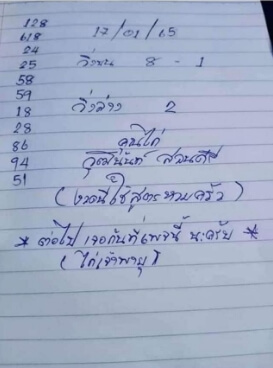 128
618
24
25
58
59
18
28
86
94
51
17/01/65
วิ่งบน 8 - 1
วิ่งล่าง 2
คุณไก่
วุฒินันท์
(งวดนี้ใช้สูตรหามครัว)
* ต่อไป เจอกันที่เพจนี้ นะครับ *
(ไก่เจ้าพายุ)